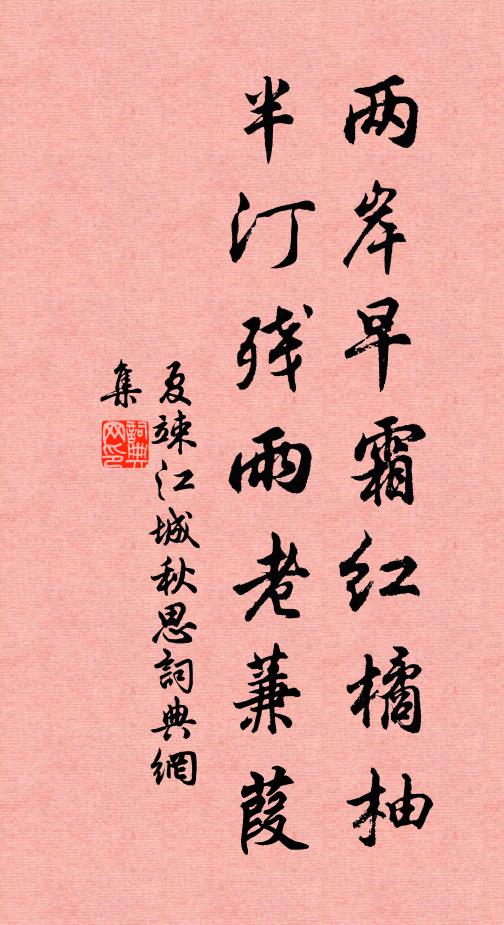 两岸早霜红橘柚
半汀残雨老蒹葭
夏竦江城秋思詞典網
集
詞典
网印